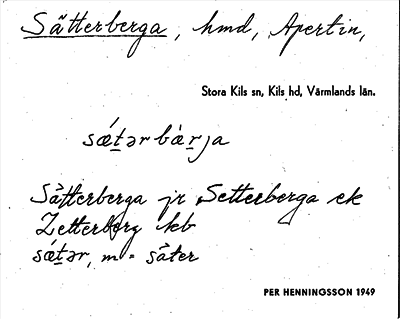 Sätterberga, hmd, Apertin,
Stora Kils sn, Kils hd, Värmlands län.
sǽt̲ər bær̲ja
Sätterberga jr Setterberga ek
Zetterberg kb
sǽt̲ər, m = säter
PER HENNINGSSON 1949